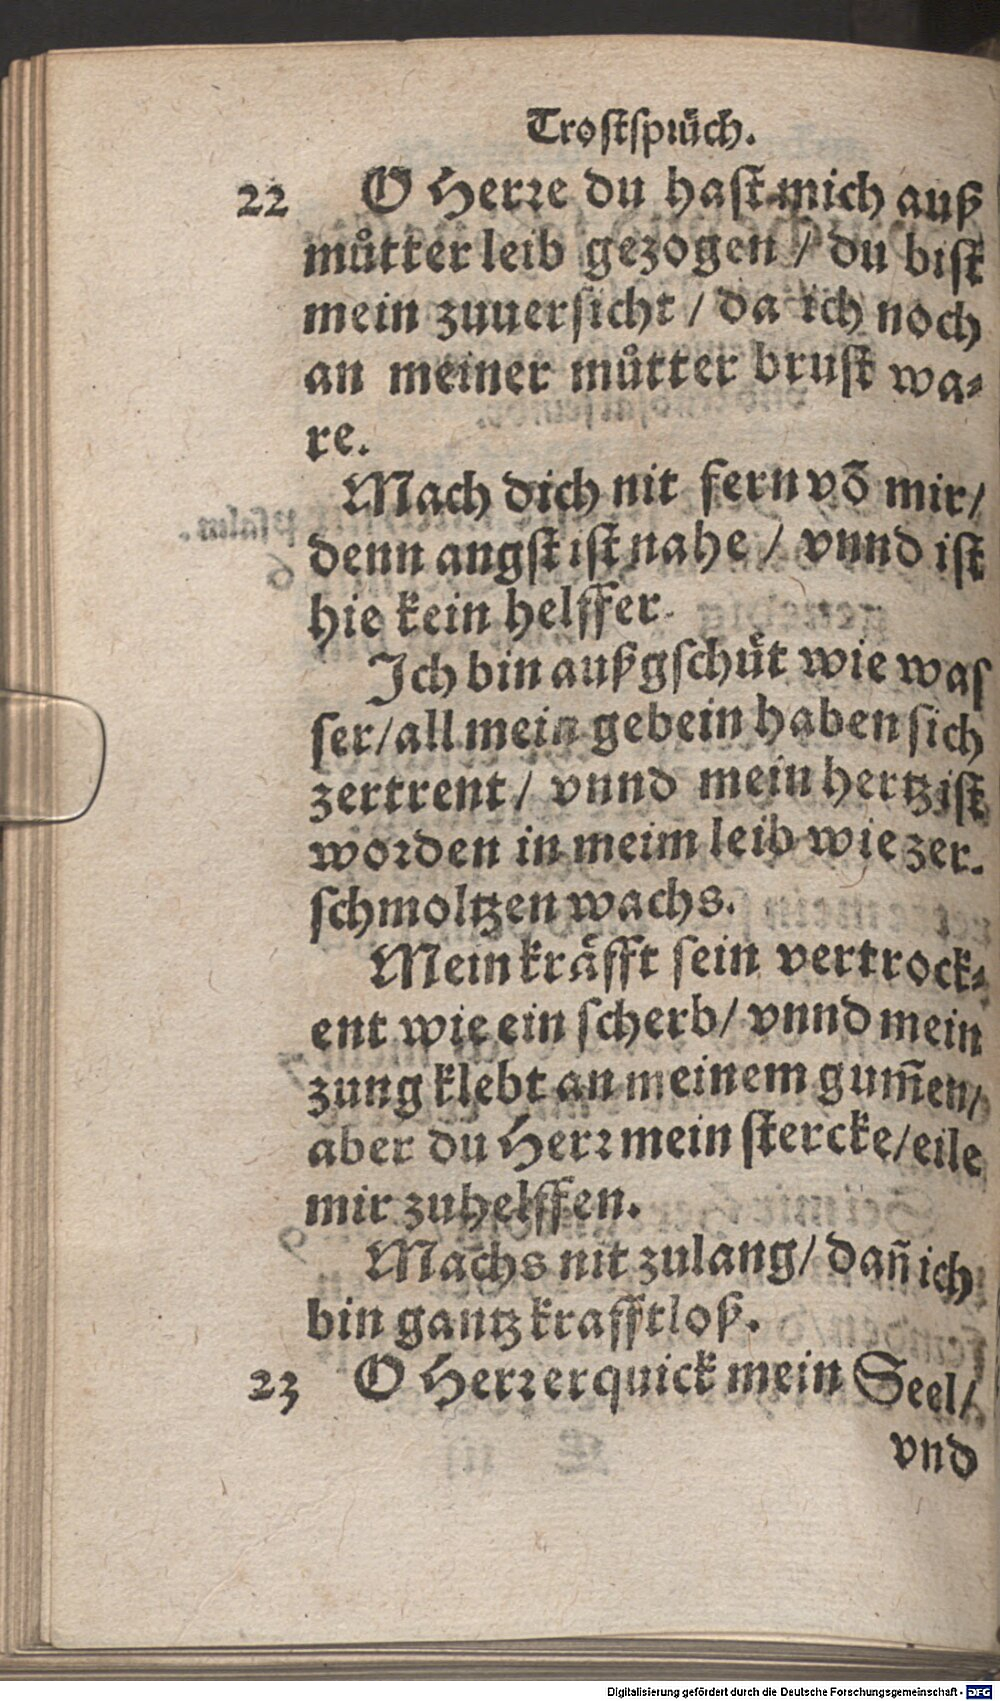 Troſtſprüch.
22 O Herre du haſt mich auß
můtter leib gezogen / du biſt
mein zuuerſicht / da ich noch
an meiner můtter bruſt wa⸗
re.
Mach dich nit fern võ mir/
denn angſt iſt nahe / vnnd iſt
hie kein helffer.
Ich bin außgſchüt wie waſ
ſer/all mein gebein haben ſich
zertrent / vnnd mein hertz iſt
worden in meim leib wie zer⸗
ſchmoltzen wachs.
Mein kräfft ſein vertrock⸗
ent wie ein ſcherb/ vnnd mein
zung klebt an meinem gum̃en/
aber du Herr mein ſtercke/eile
mir zuhelffen.
Machs nit zulang/ dañ ich
bin gantz krafftloß.
23 O Herr erquick mein Seel/
vnd
Digitalisierung gefördert durch die Deutsche Forschungsgemeinschaft - DFG